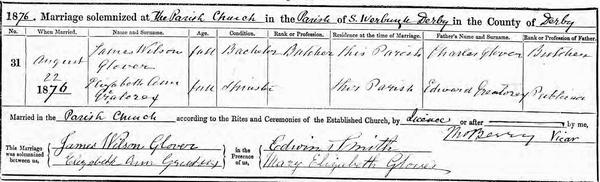 1876. Marriage solemnized at The Parish Church in the Parish of S. Werburgh Derby in the County of Derby
No. When Married. Name and Surname. Age. Condition. Rank or Profession. Residence at the time of Marriage. Father's Name and Surname. Rank or Profession of Father.
31 August 22 1876 James Wilson Glover full Bachelor Butcher This Parish Charles Glover Butcher
Elizabeth Ann full Spinster This Parish Edward Publican
Married in the Parish Church according to the Rites and Ceremonies of the Established Church, by Licence or after by me,
Vicar
This Marriage was solemnized between us, James Wilson Glover in the Presence of us, Edwin Smith
Elizabeth Ann Mary Elizabeth Glover